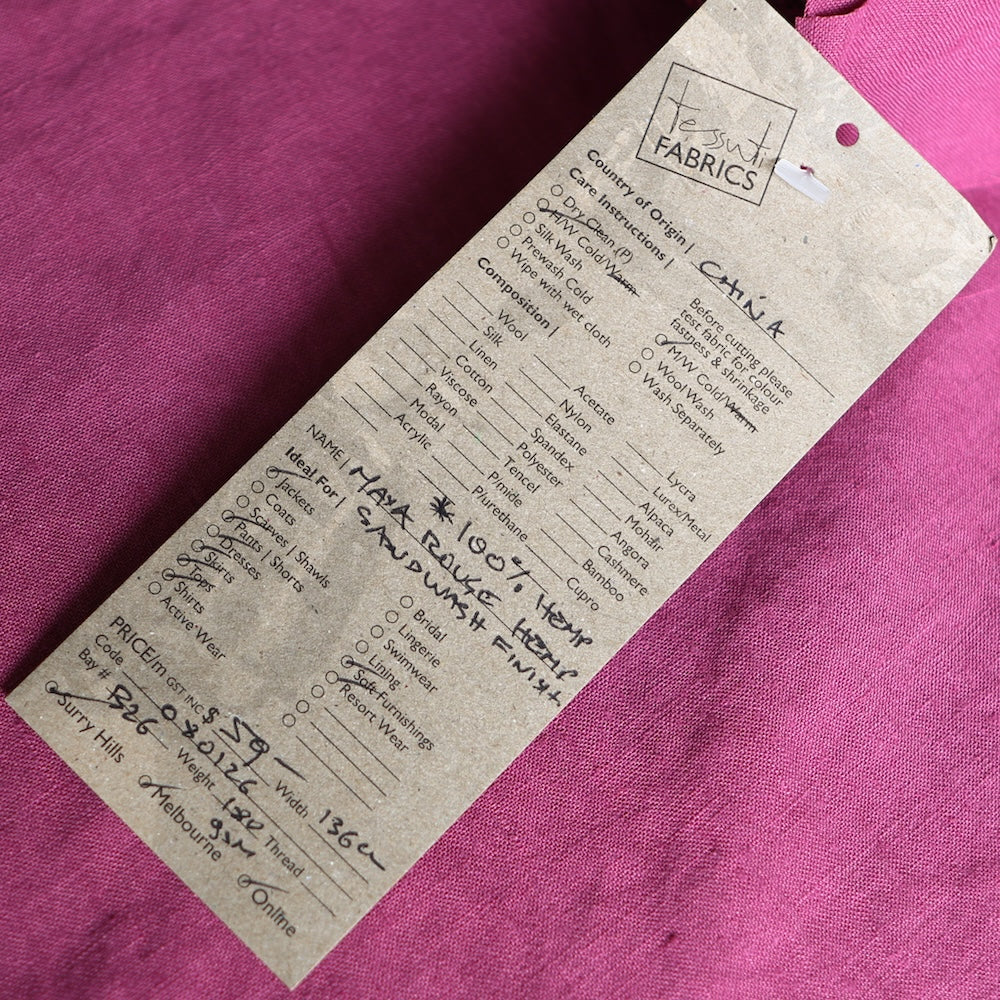 tessuti
FABRICS
Country of Origin | CHINA
Care Instructions |
Dry Clean (P)
H/W Cold/Warm
Silk Wash
Prewash Cold
Wipe with wet cloth
Before cutting please
test fabric for colour
fastness & shrinkage
M/W Cold/Warm
Wool Wash
Wash Separately
Composition |
Wool
Silk
Linen
Cotton
Viscose
Rayon
Modal
Acrylic
Acetate
Nylon
Elastane
Spandex
Polyester
Tencel
P/mide
P/urethane
Lycra
Lurex/Metal
Alpaca
Mohair
Angora
Cashmere
Bamboo
Cupro
* 100% HEMP
NAME | MAYA ROUGE HEMP
SANDWASH FINISH
Ideal For |
Jackets
Coats
Scarves | Shawls
Pants | Shorts
Dresses
Skirts
Tops
Shirts
Active Wear
Bridal
Lingerie
Swimwear
Lining
Soft Furnishings
Resort Wear
PRICE/m GST INC $ 59-
Code 080126 Width 136cm
Bay # B26 Weight 180 gsm Thread
Surry Hills
Melbourne
Online